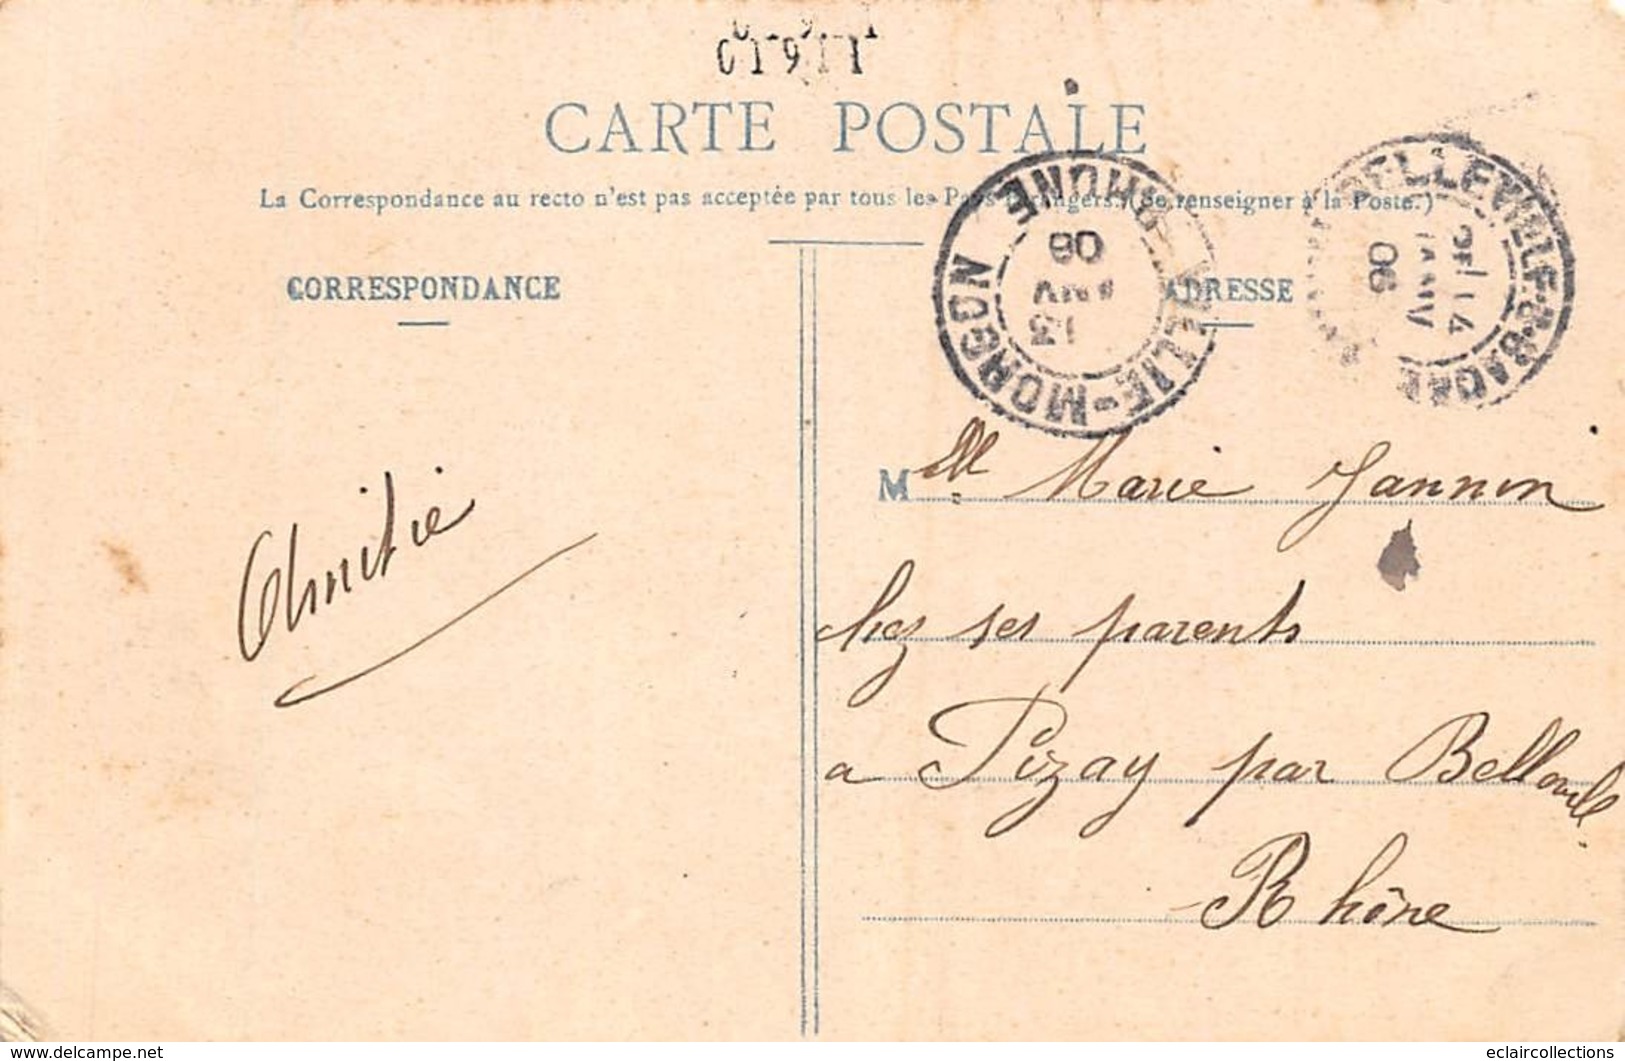 01911
CARTE POSTALE
La Correspondance au recto n'est pas acceptée par tous les Pays étrangers. (Se renseigner à la Poste.)
CORRESPONDANCE
ADRESSE
VILLIE-MORGON RHONE
13 06
BELLEVILLE-S-SAONE
14 JANV 06
Mlle Marie Jannin
chez ses parents
a Pizay par Belleville
Rhône
Amitié
www.delcampe.net
eclaircollections